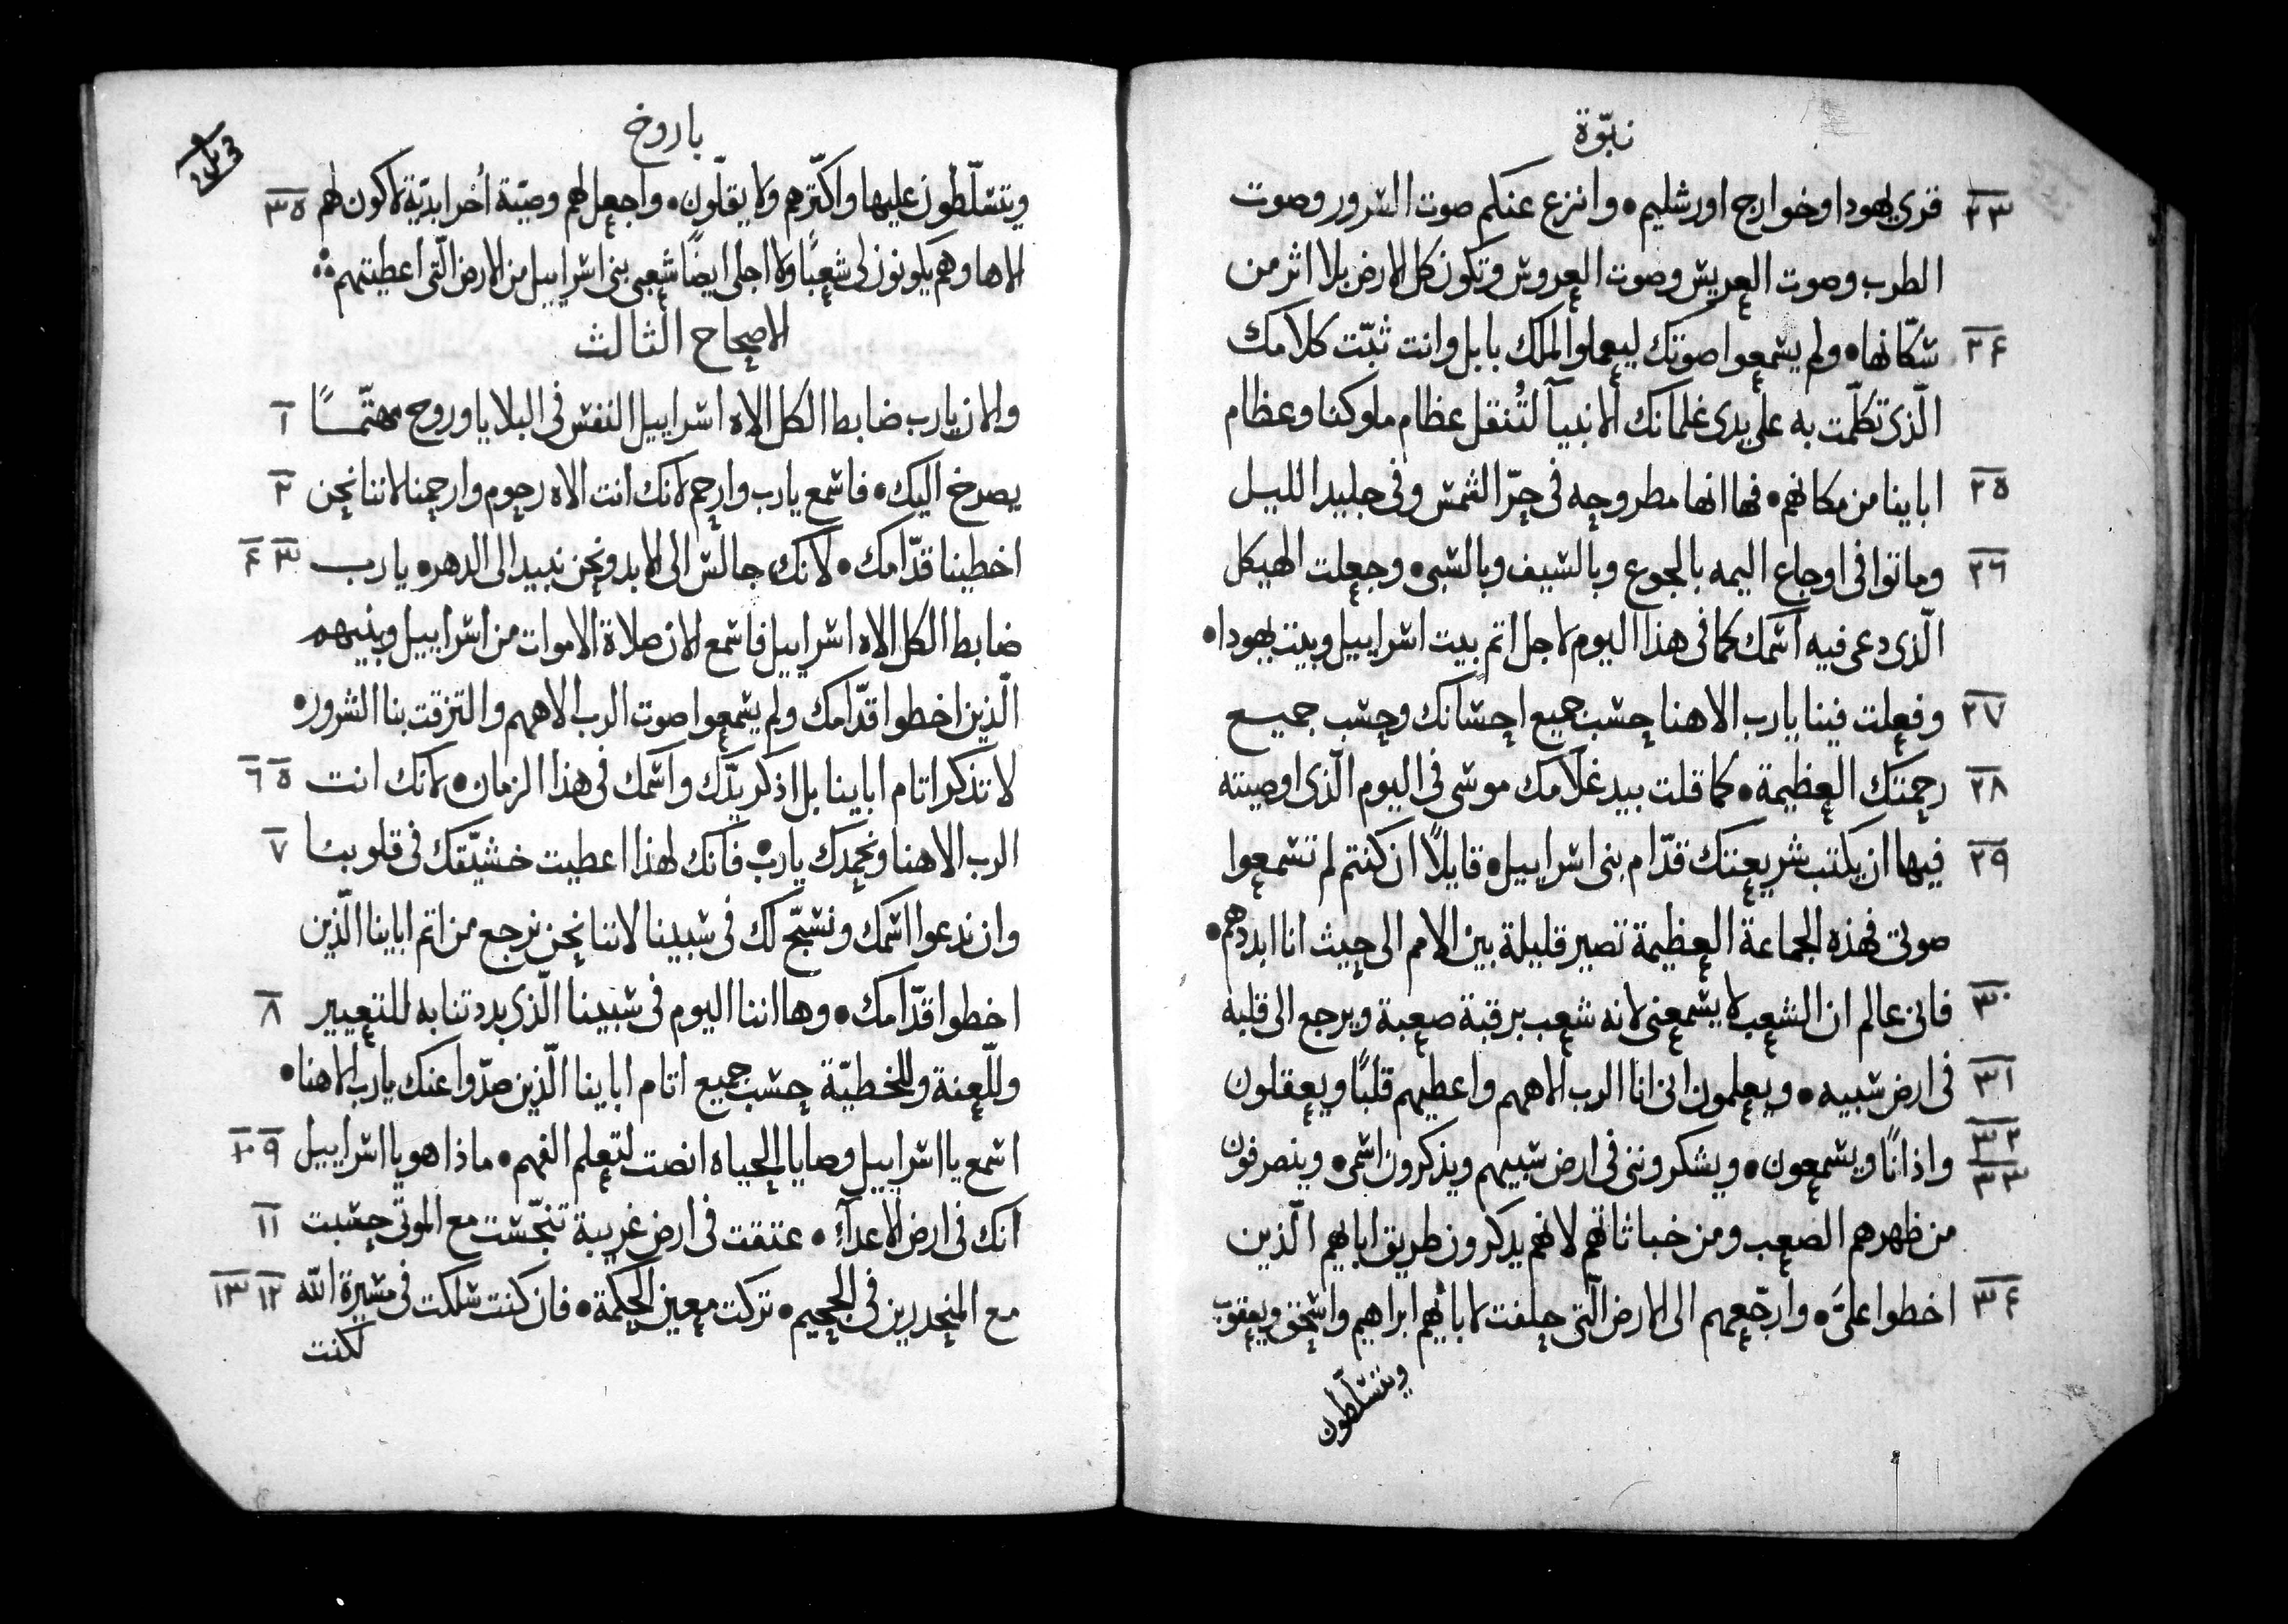 نبوّة
٢٣ قرى يهودا وخوارج اورشليم • وانزع عنكم صوت السرور وصوت
الطرب وصوت العريس وصوت العروس وتكون كل الارض بلا اثر من
٢۴ سكّانها • ولم يسمعوا صوتك ليعملوا لملك بابل وانت ثبّت كلامك
الّذي تكلّمت به على يدي غلمانك الانبيآ لتُنقل عظام ملوكنا وعظام
٢٥ اباينا من مكانهم • فها انها مطروحه في حرّ الشمس وفي جليد الليل
٢٦ وماتوا في اوجاع اليمه بالجوع وبالسيف وبالسبي • وجعلت الهيكل
الّذي دعى فيه اسمك كما في هذا اليوم لاجل اثم بيت اسراييل وبيت يهودا •
٢٧ وفعلت فينا يارب الاهنا حسب جميع احسانك وحسب جميع
٢٨ رحمتك العظيمة • كما قلت بيد غلامك موسى في اليوم الّذي اوصيته
٢٩ فيها ان يكتب شريعتك قدّام بني اسراييل • قايلاً ان كنتم لم تسمعوا
صوتي فهذه الجماعة العظيمة تصير قليلة بين الامم الى حيث انا ابددهم •
٣٠ فاني عالم ان الشعب لا يسمعني لانه شعب برقبة صعبة ويرجع الى قلبه
٣١ في ارض سبيه • ويعلمون اني انا الرب الاههم واعطيهم قلبًا ويعقلون
٣٢ ٣٣ واذانًا ويسمعون • ويشكرونني في ارض سبيهم ويذكرون اسمي • وينصرفون
من ظهرهم الصعب ومن خباثاتهم لانهم يذكرون طريق ابايهم الّذين
٣۴ اخطوا عليَّ • وارجّعهم الى الارض الّتي حلفت لابائهم ابراهيم واسحق ويعقوب
ويتسلّطون
باروخ
ويتسلّطون عليها واكثّرهم ولا يقلّون • واجعل لهم وصيّة أخرا ابديّة لاكون لهم ٣٥
الاها وهم يكونون لي شعبًا ولا اجلي ايضًا شعبي بني اسراييل من الارض الّتي اعطيتهم
الاصحاح الثالث
والان يارب ضابط الكل الاه اسراييل النفس في البلايا وروح مهتمّـًا ١
يصرخ اليك • فاسمع يارب وارحم لانك انت الاه رحوم وارحمنا لاننا نحن ٢
اخطينا قدّامك • لانك جالس الى الابد ونحن نبيد الى الدهر • يارب ٣ ۴
ضابط الكل الاه اسراييل فاسمع الان صلاة الاموات من اسراييل وبنيهم
الّذين اخطوا قدّامك ولم يسمعوا صوت الرب الاههم والتزقت بنا الشرور •
لا تذكر اثام اباينا بل اذكر يدّك واسمك في هذا الزمان • لانك انت ٥ ٦
الرب الاهنا ونحمدك يارب • فانك لهذا اعطيت خشيّتك في قلوبنا ٧
وان ندعوا اسمك ونسبّح لك في سبينا لاننا نحن نرجع من اثم اباينا الّذين
اخطوا قدّامك • وها اننا اليوم في سبينا الّذي بددتنا به للتعيير ٨
وللّعنة وللخطيّة حسب جميع اثام اباينا الّذين صدّوا عنك يارب الاهنا •
اسمع يا اسراييل وصايا الحياه انصت لتعلم الفهم • ماذا هو يا اسراييل ٩ ١٠
انك في ارض الاعدآء • عتقت في ارض غريبة تنجّست مع الموتى حسبت ١١
مع المنحدرين في الجحيم • تركت معين الحكمة • فان كنت سلكت في مسيرة الله ١٢ ١٣
لكنت